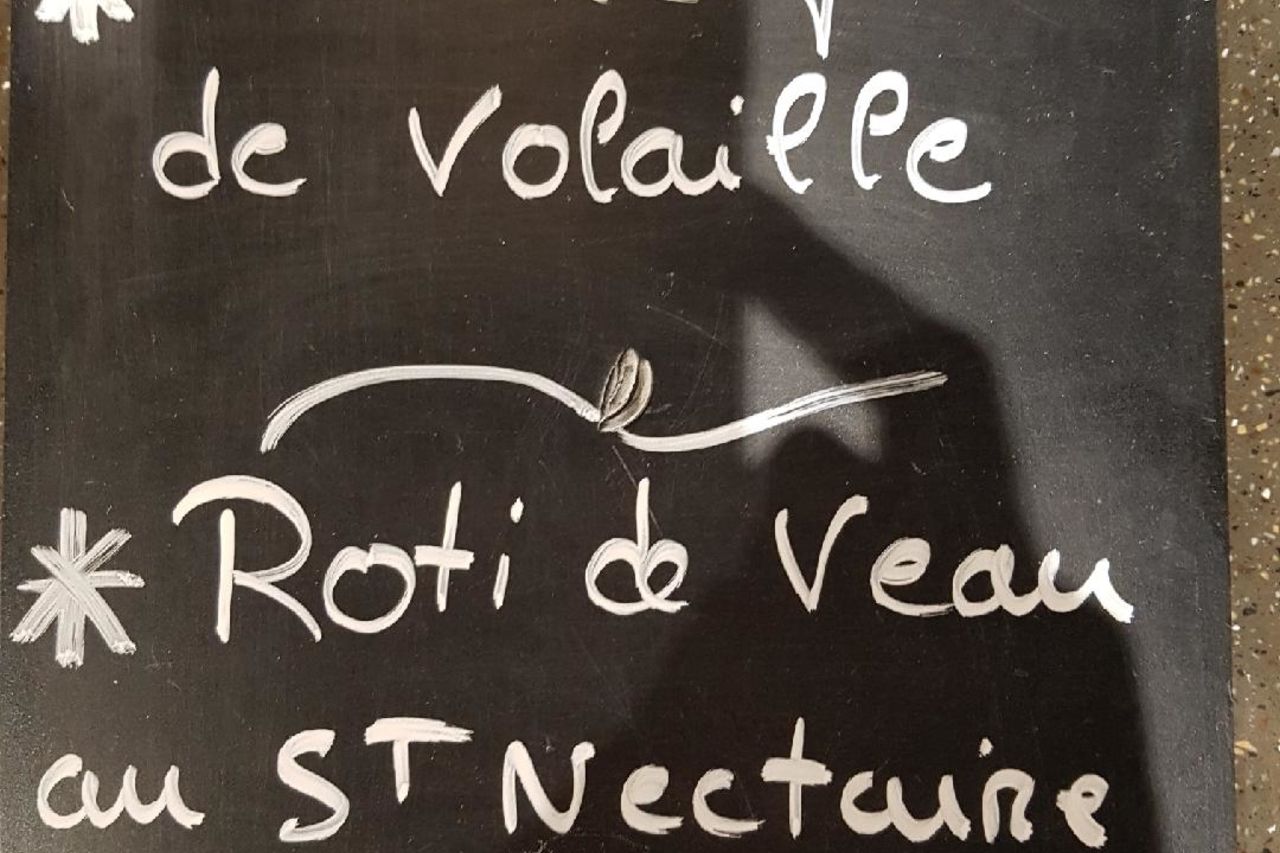 * 
de Volaille
* Roti de Veau
au ST Nectaire